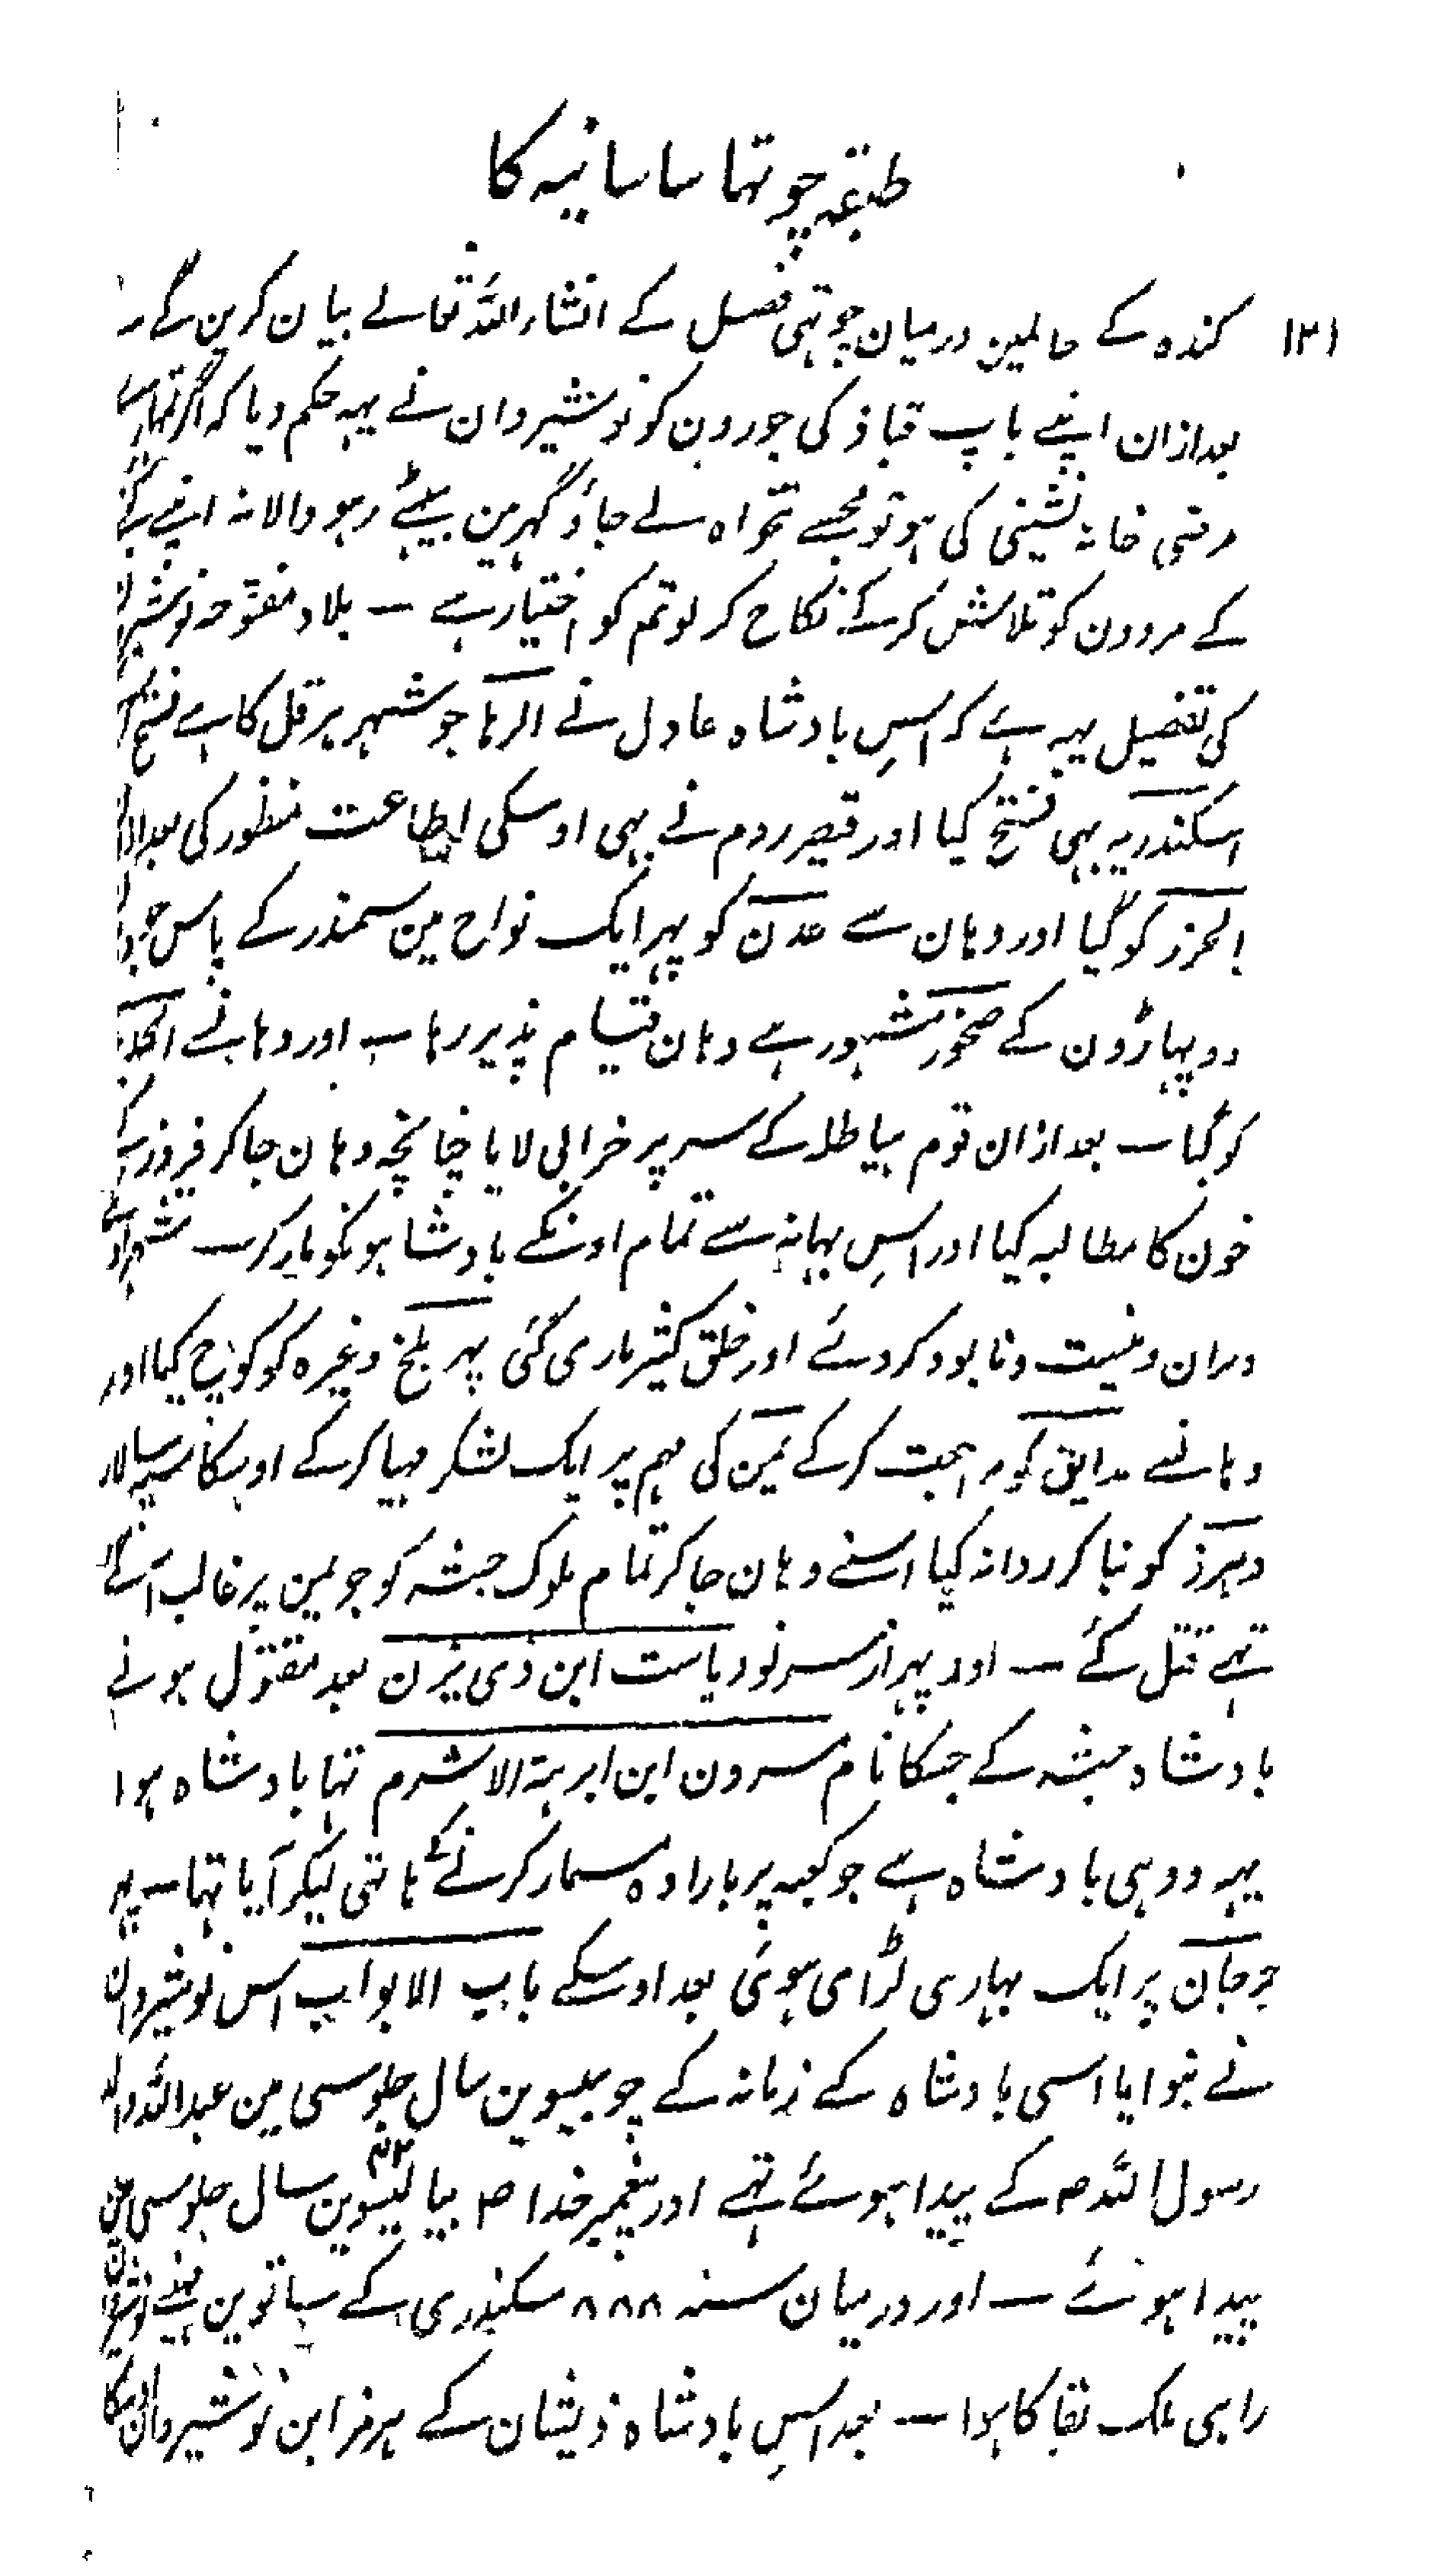 طبقہ چوتہا ساسانیہ کا
۱۲۱ کندہ کے حالمین درمیان چوتہی فصل کے انشاء اللہ تعالے بیان کرین گے
بعد ازان اپنے باپ قباذ کی جوروں کو نوشیروان نے یہہ حکم دیا کہ اگر تمہارے
مرضی خانہ نشینی کی ہو تو مجہسے تنخواہ لے جاؤ گہرمین بیٹہے رہو والا نہ اپنے
کے مردون کو تلاش کر کے نکاح کر لو تم کو اختیار ہے — بلاد مفتوحہ
کی تفصیل یہہ ہے کہ اس بادشاہ عادل نے الرہا جو شہر ہرقل کا ہے فتح
اسکندریہ بہی فتح کیا اور قیصر روم نے بہی اوسکی اطاعت منظور کی
الخزر کو گیا اور وہان سے عدن کو پہر ایک نواح مین سمندر کے پاس جو
دو پہاڑون کے صخور مشہور ہے وہان قیام پذیر رہا — اور وہانسے
کو گیا — بعد ازان قوم ہیاطلہ کے سر پر خرابی لایا چنانچہ وہان جا کر فیروز کے
خون کا مطالبہ کیا اور اس بہانہ سے تمام اونکے بادشاہونکو مار کر — شہر اونکے
ویران و نیست و نابود کر دئے اور خلق کثیر ماری گئی پہر بلخ وغیرہ کو کوچ کیا اور
وہانسے مداین کو مراجعت کر کے یمن کی مہم پر ایک لشکر مہیا کر کے اوسکا سپہ سالار
وہرز کو بنا کر روانہ کیا اسنے وہان جا کر تمام ملوک حبشہ کو جو یمن پر غالب آگئے
تہے قتل کئے — اور پہر از سر نو ریاست ابن ذی یزن بعد مقتول ہونے
بادشاہ حبشہ کے جسکا نام مسروق ابن ابرہۃ الاشرم تہا بادشاہ ہوا
یہہ ووہی بادشاہ ہے جو کعبہ پر بارادہ مسمار کرنے کے ہاتہی لیکر آیا تہا — پہر
جرجان پر ایک بہاری لڑای ہوئی بعد اوسکے باب الابواب اس نوشیروان
نے بنوایا اسی بادشاہ کے زمانہ کے چوبیسوین سال جلوسی مین عبداللہ والد
رسول اللہ ص کے پیدا ہوئے تہے اور پیغمبر خدا ص بیالیسوین ۴۲ سال جلوسی مین
پیدا ہوئے — اور درمیان سنہ ۸۸۸ سکندری کے ساتوین مہینے نوشیروان
راہی ملک بقا کا ہوا — بعد اس بادشاہ ذیشان کے ہرمز ابن نوشیروان اوسکا